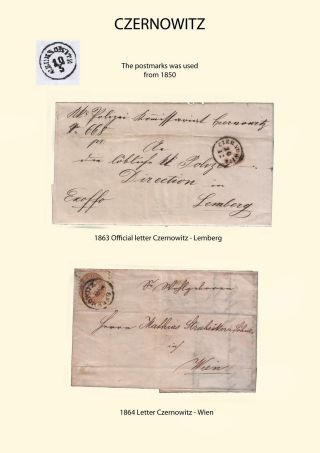 CZERNOWITZ
CZERNOWITZ
10
5
The postmarks was used
from 1850
Kk. Polizei Commissariat Czernowitz
An
die löbliche kk Polizei
Direction
in
Exoffo Lemberg
1863 Official letter Czernowitz - Lemberg
Sr Wohlgeboren
Herrn Mathias
in
Wien
1864 Letter Czernowitz - Wien